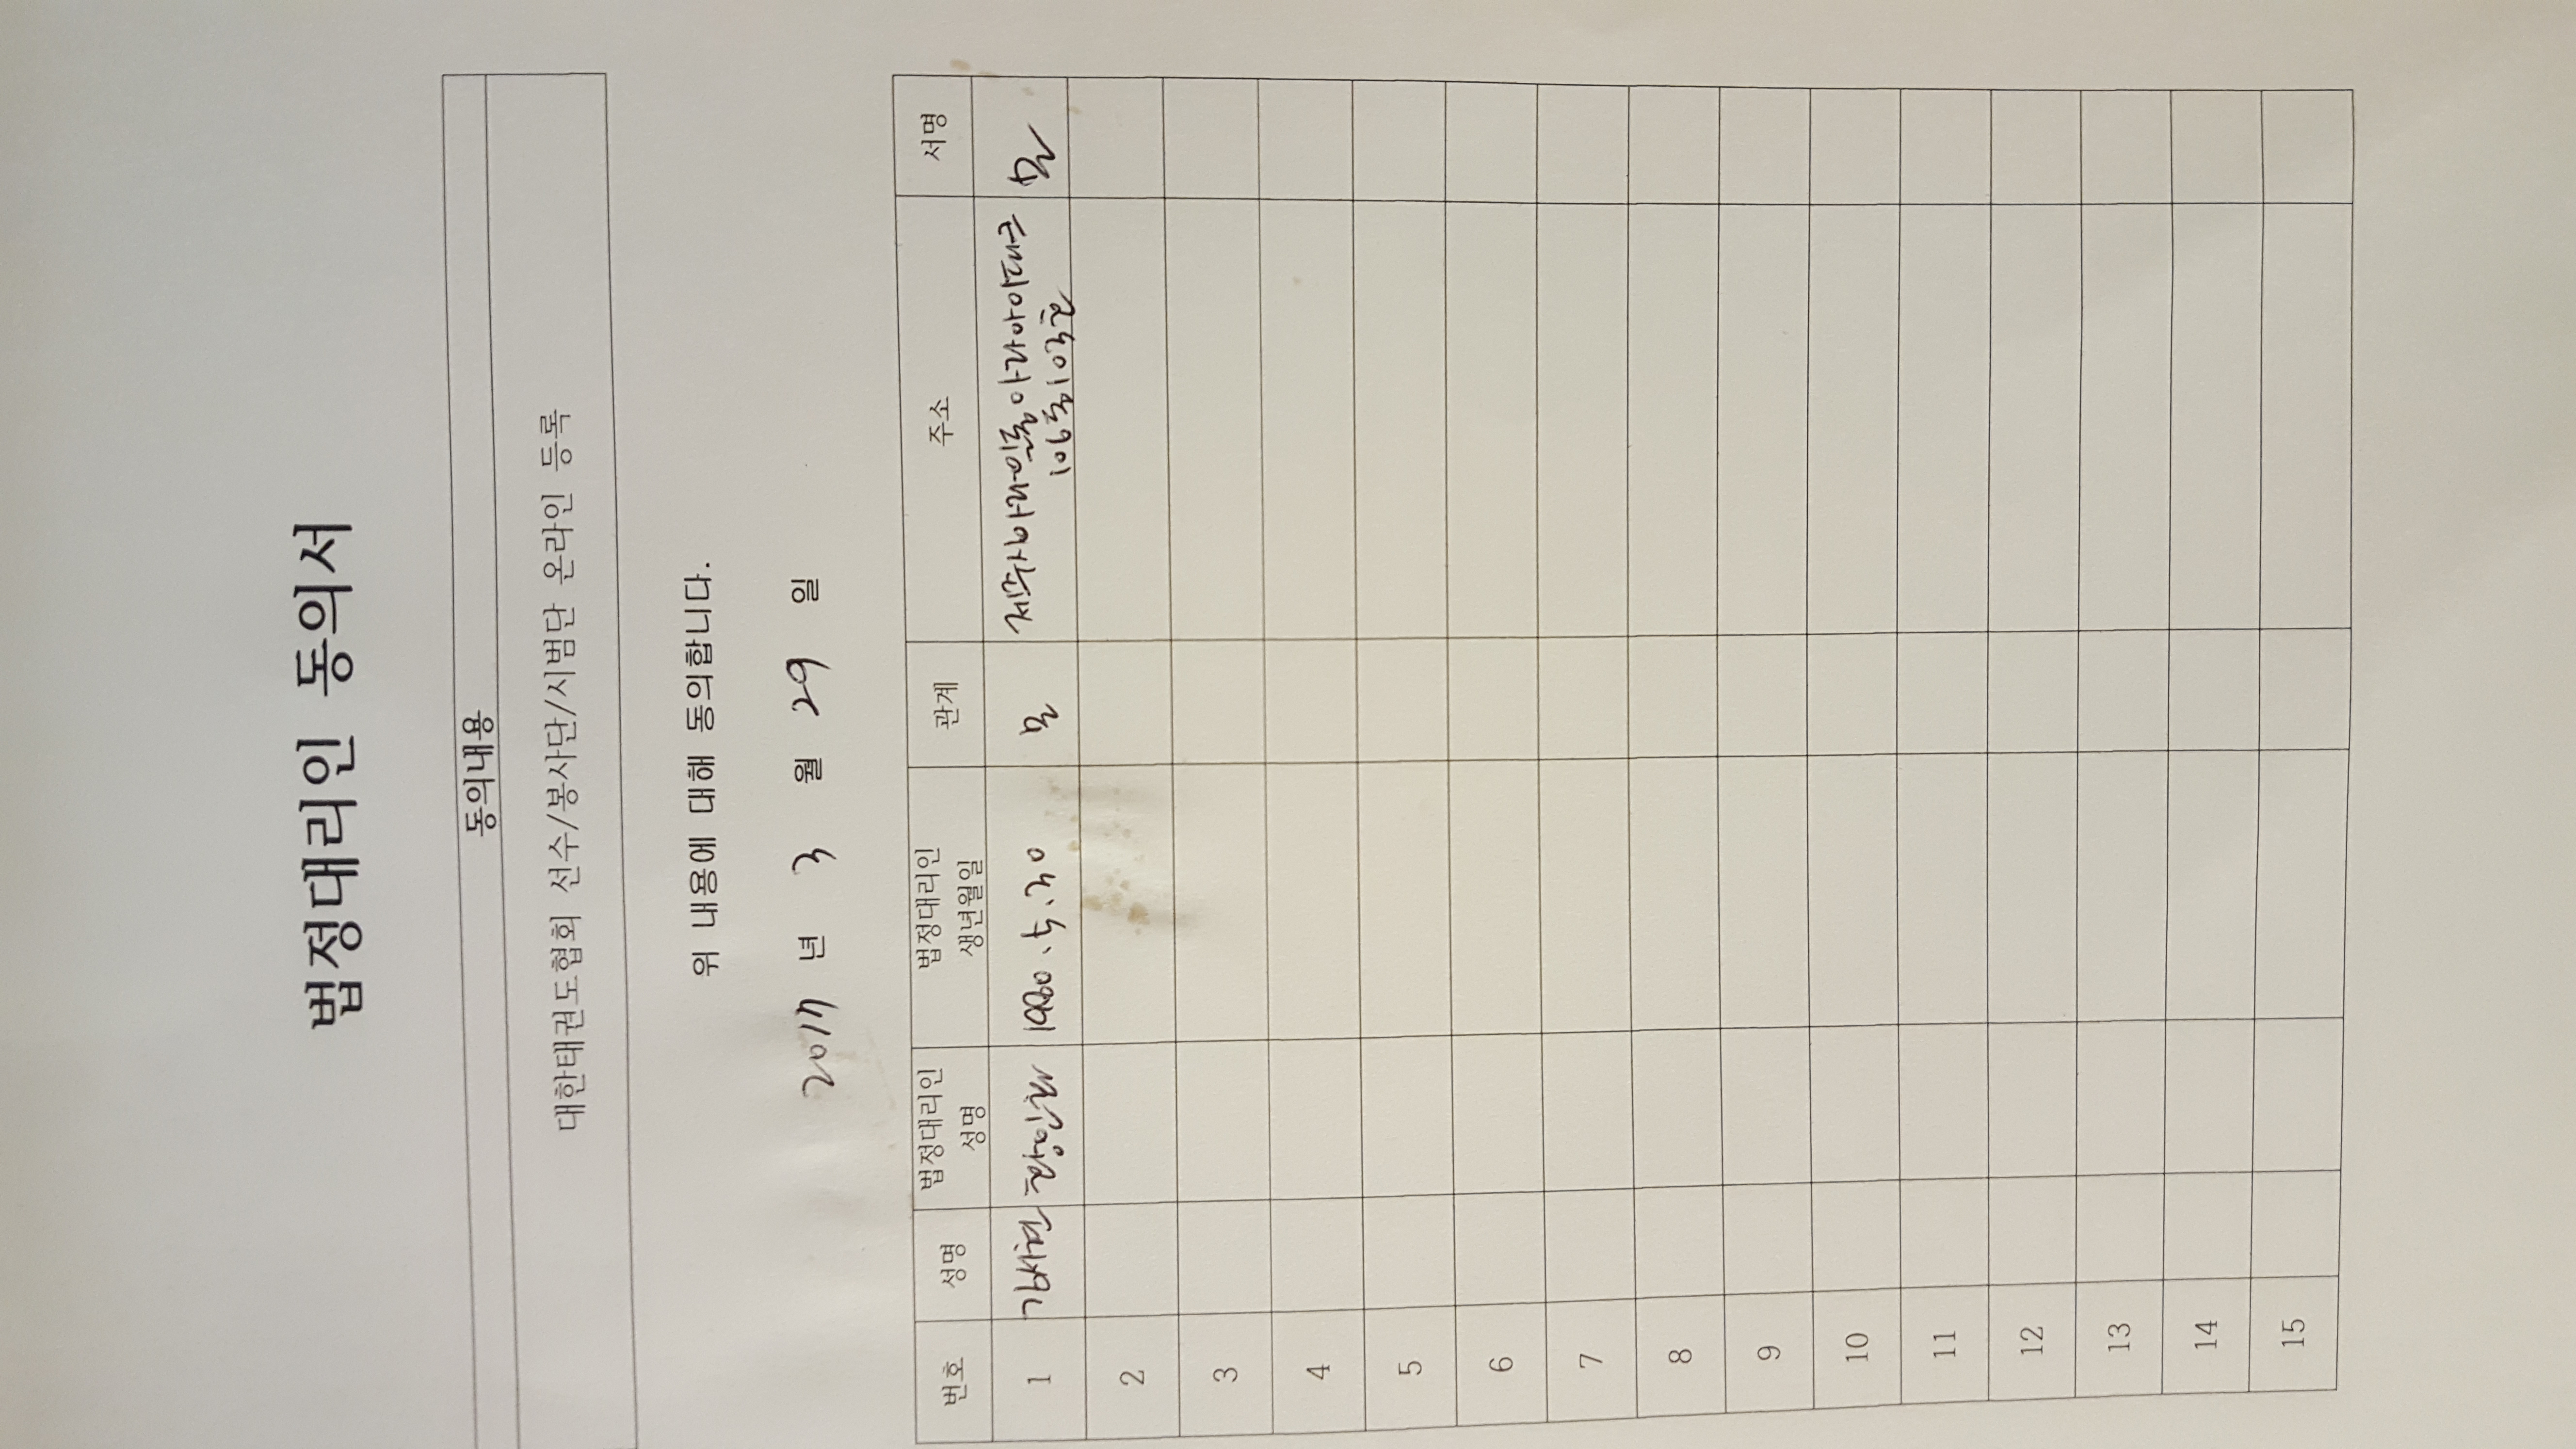 법정대리인 동의서
동의내용
대한태권도협회 선수/봉사단/시범단 온라인 등록
위 내용에 대해 동의합니다.
2017 년 3 월 29 일
번호 성명 법정대리인 성명 법정대리인 생년월일 관계 주소 서명
1 1980. 5. 30 모
106동 103호
2
3
4
5
6
7
8
9
10
11
12
13
14
15